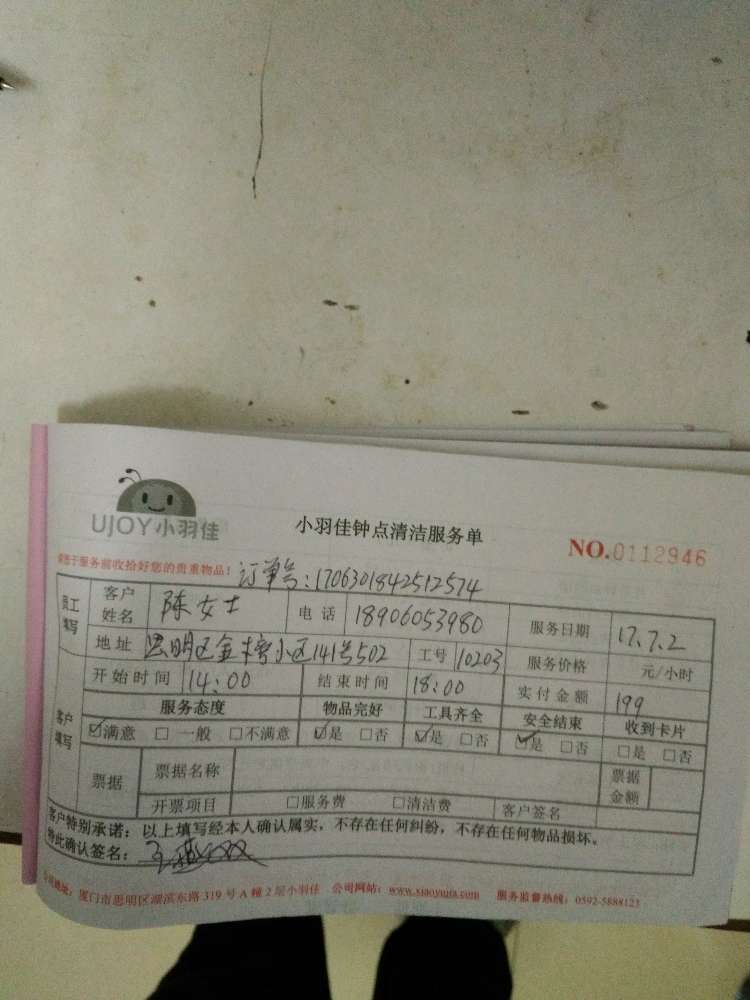 UJOY小羽佳
小羽佳钟点清洁服务单
NO.0112946
服务前收拾好您的贵重物品！
订单号：1706301842512574
员工填写 客户姓名 陈女士 电话 18906053980 服务日期 17.7.2
地址 思明区金榜小区141号502 工号 10203 服务价格 元/小时
开始时间 14:00 结束时间 18:00 实付金额 199
客户填写 服务态度 物品完好 工具齐全 安全结束 收到卡片
☑满意 □一般 □不满意 ☑是 □否 ☑是 □否 ☑是 □否 □是 □否
票据 票据名称 票据金额
开票项目 □服务费 □清洁费 客户签名
客户特别承诺：以上填写经本人确认属实，不存在任何纠纷，不存在任何物品损坏。
特此确认签名：
公司地址：厦门市思明区湖滨东路319号A幢2层小羽佳 公司网站：www.xiaoyujia.com 服务监督热线：0592-5888123